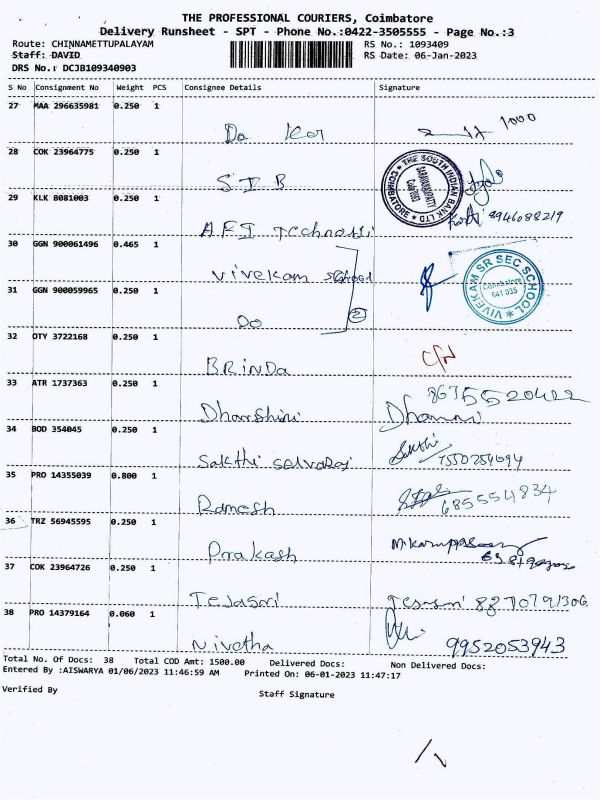 THE PROFESSIONAL COURIERS, Coimbatore
Delivery Runsheet - SPT - Phone No.:0422-3505555 - Page No.:3
Route: CHINNAMETTUPALAYAM RS No.: 1093409
Staff: DAVID RS Date: 06-Jan-2023
DRS No.: DCJB109340903
S No Consignment No Weight PCS Consignee Details Signature
27 MAA 296635981 0.250 1
Do 1000
28 COK 23964775 0.250 1
THE SOUTH INDIAN BANK LTD
COIMBATORE
SIB
29 KLK 8081003 0.250 1
8946088219
AFI
30 GGN 900061496 0.465 1
Vivekam School
VIVEKAM SR SEC SCHOOL
Coimbatore
641 035
31 GGN 900059965 0.250 1
Do 2
32 OTY 3722168 0.250 1
BRinDa
33 ATR 1737363 0.250 1
Dharshini
34 BOD 354045 0.250 1
Sakthi Selvaraj Sakthi 7550254694
35 PRO 14355039 0.800 1
Ramesh 685554834
36 TRZ 56945595 0.250 1
Prakash
37 COK 23964726 0.250 1
Tejasri
38 PRO 14379164 0.060 1
Nivetha 9952053943
Total No. Of Docs: 38 Total COD Amt: 1500.00 Delivered Docs: Non Delivered Docs:
Entered By :AISWARYA 01/06/2023 11:46:59 AM Printed On: 06-01-2023 11:47:17
Verified By Staff Signature